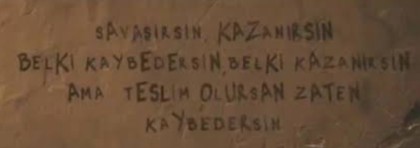 SAVAŞIRSIN, KAZANIRSIN
BELKİ KAYBEDERSİN, BELKİ KAZANIRSIN
AMA TESLİM OLURSAN ZATEN
KAYBEDERSİN